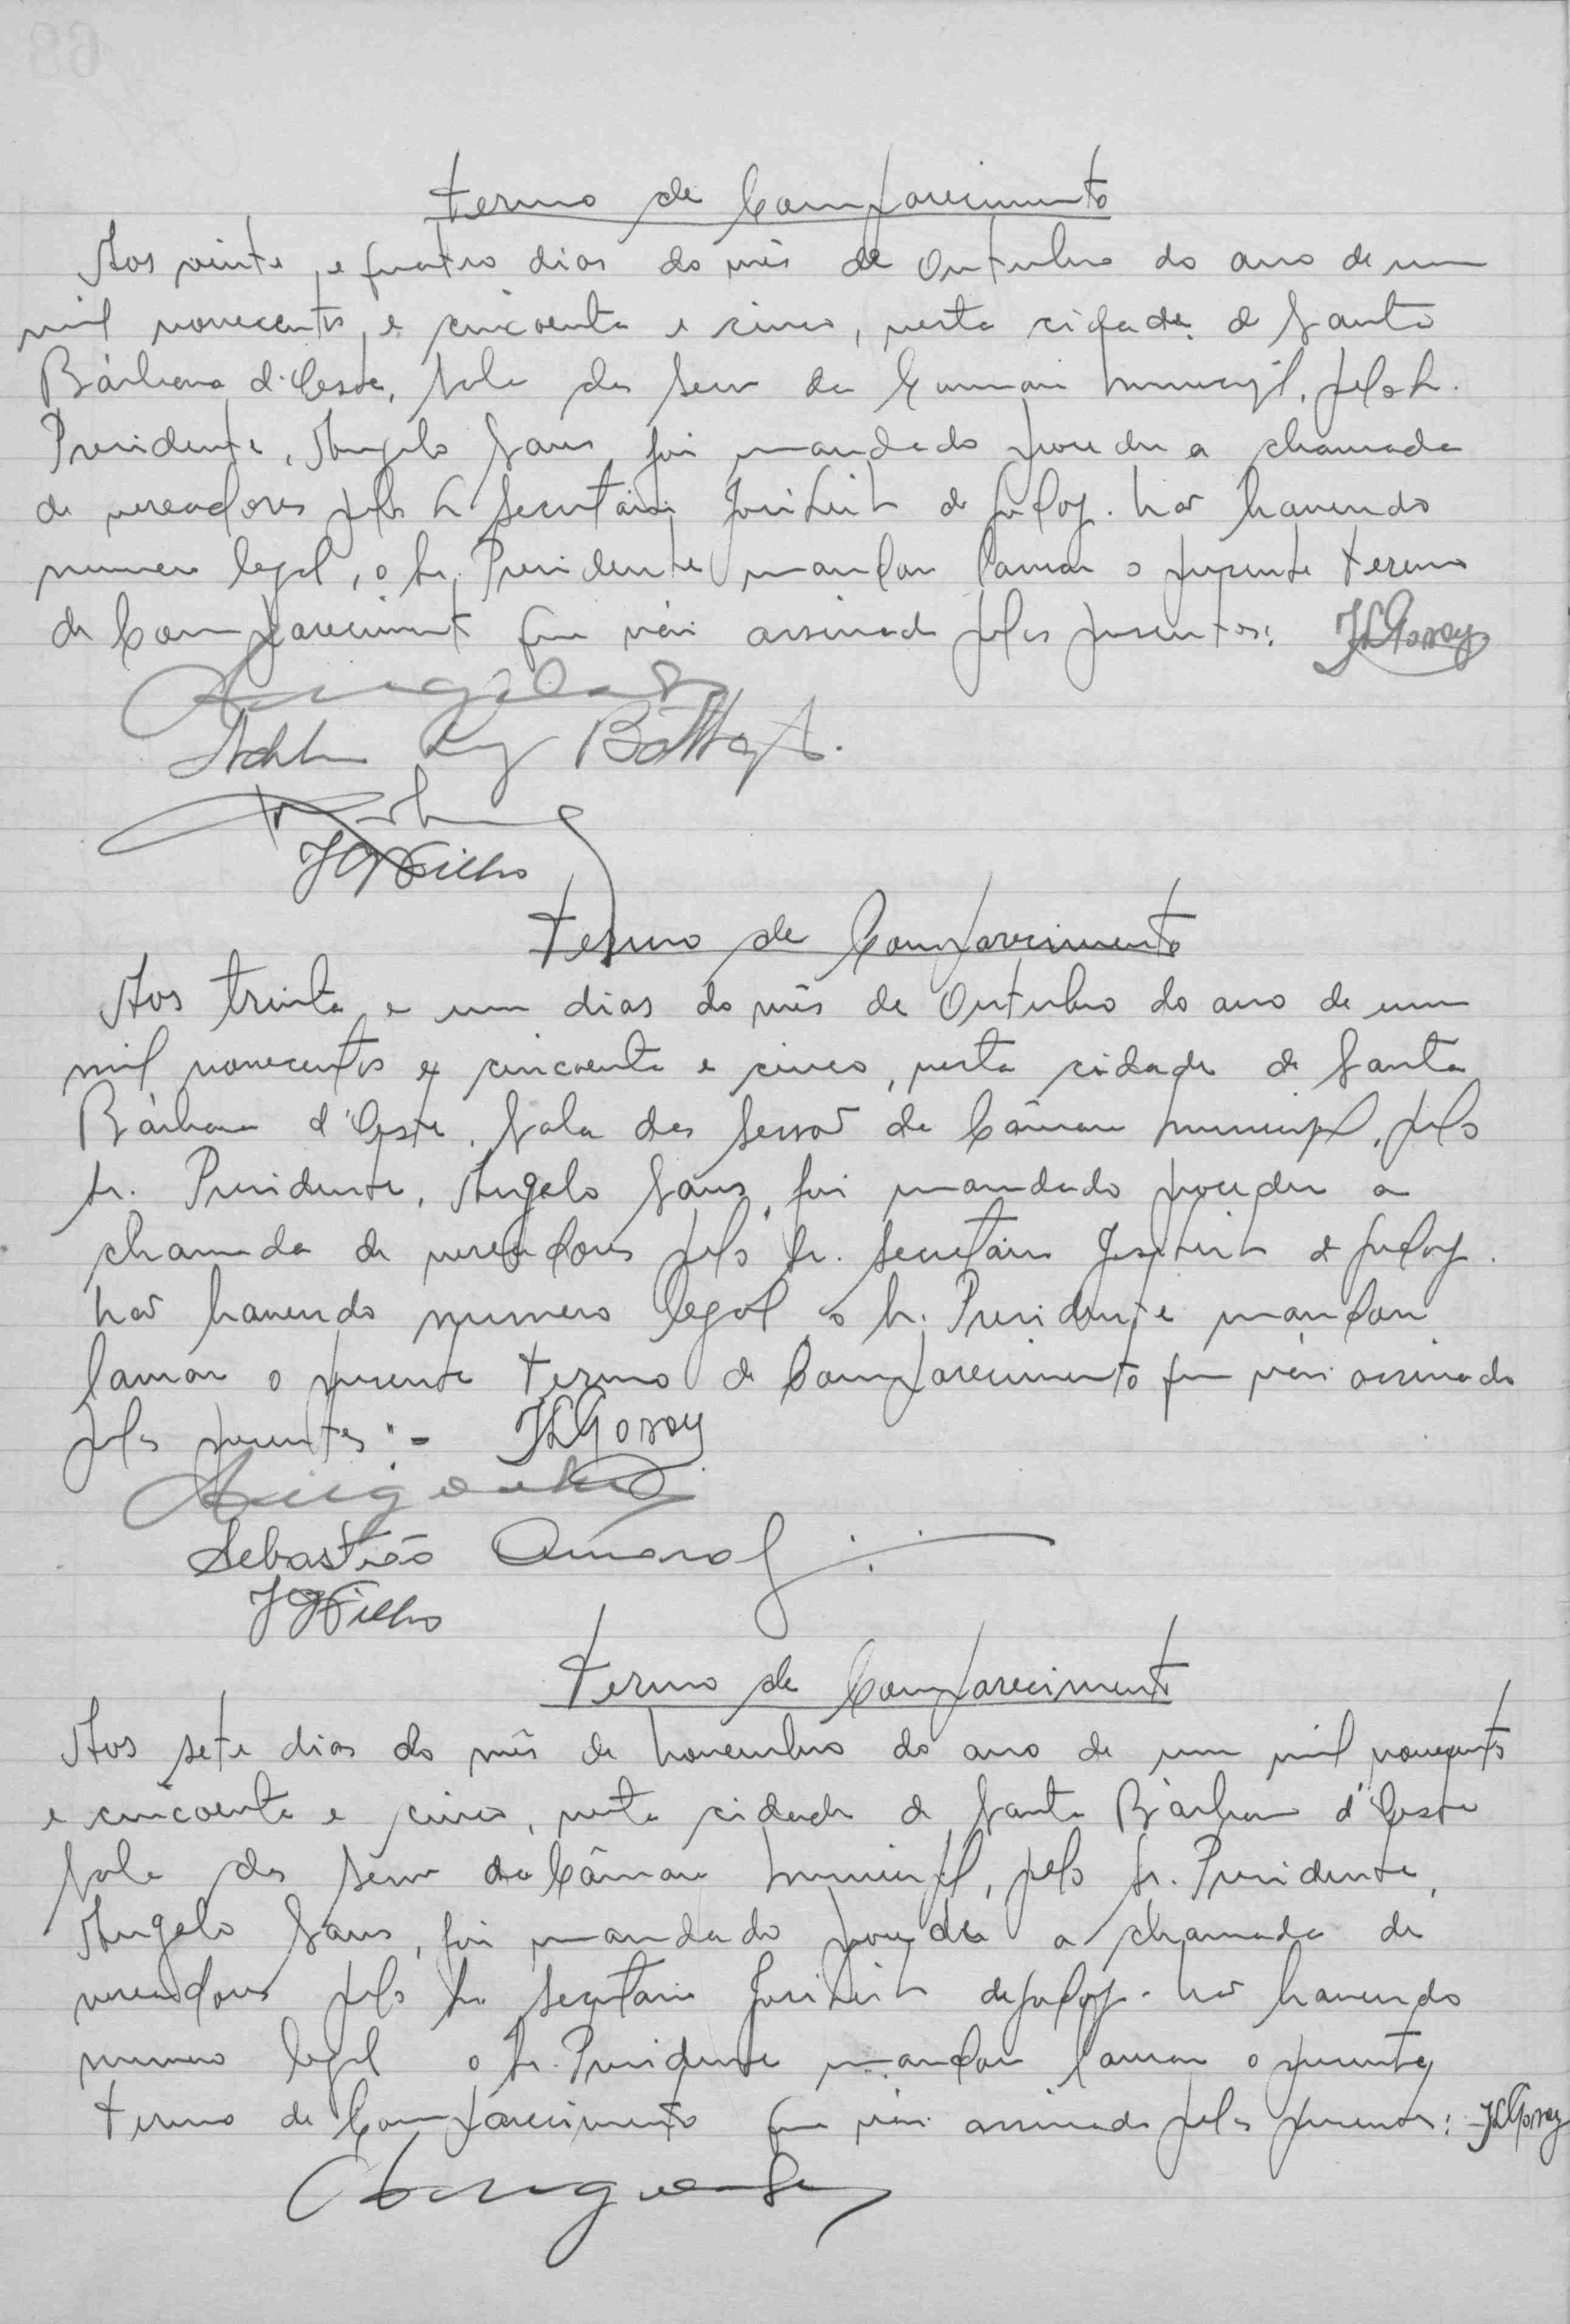 Termo de Comparecimento
Aos vinte e quatro dias do mês de Outubro do ano de um
mil novecentos e cincoenta e cinco, nesta cidade de Santa
Bárbara d'Oeste, Sala das Sessões da Camara Municipal, pelo Sr.
Presidente, Angelo Sans, foi mandado proceder a chamada
de vereadores pelo Sr Secretário José Leite de Godoy. Não havendo
numero legal, o Sr. Presidente mandou lavrar o presente termo
de Comparecimento que vai assinado pelos presentes: JLGodoy
Angelo Sans
Termo de Comparecimento
Aos trinta e um dias do mês de Outubro do ano de um
mil novecentos e cincoenta e cinco, nesta cidade de Santa
Bárbara d'Oeste, Sala das Sessões da Câmara Municipal, pelo
Sr. Presidente, Angelo Sans, foi mandado proceder a
chamada de vereadores pelo Sr. Secretário José Leite de Godoy.
Não havendo numero legal o Sr. Presidente mandou
lavrar o presente termo de Comparecimento que vai assinado
pelos presentes:- JLGodoy
Sebastião Amaral
Termo de Comparecimento
Aos sete dias do mês de Novembro do ano de um mil novecentos
e cincoenta e cinco, nesta cidade de Santa Bárbara d'Oeste
Sala das Sessões da Câmara Municipal, pelo Sr. Presidente,
Angelo Sans, foi mandado proceder a chamada de
vereadores pelo Sr Secretário José Leite de Godoy. Não havendo
numero legal o Sr. Presidente mandou lavrar o presente
termo de Comparecimento que vai assinado pelos presentes: JLGodoy